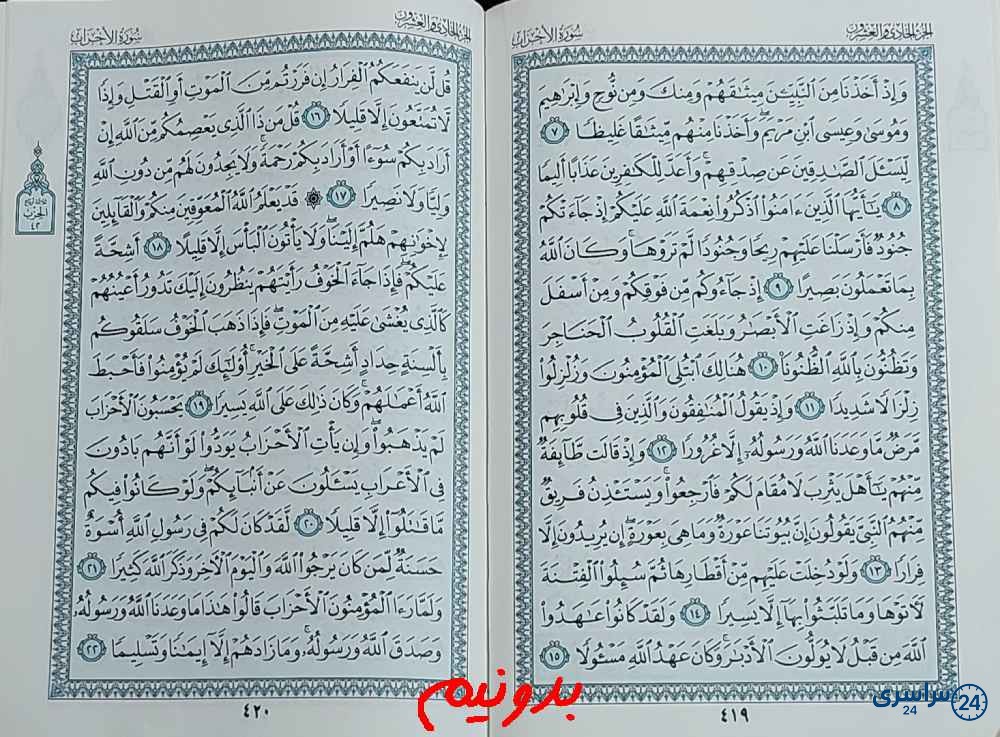 الجزء الحادي والعشرون
سورة الأحزاب
وَإِذْ أَخَذْنَا مِنَ ٱلنَّبِيِّـۧنَ مِيثَٰقَهُمْ وَمِنكَ وَمِن نُّوحٍ وَإِبْرَٰهِيمَ
وَمُوسَىٰ وَعِيسَى ٱبْنِ مَرْيَمَ ۖ وَأَخَذْنَا مِنْهُم مِّيثَٰقًا غَلِيظًا ٧
لِّيَسْـَٔلَ ٱلصَّٰدِقِينَ عَن صِدْقِهِمْ ۚ وَأَعَدَّ لِلْكَٰفِرِينَ عَذَابًا أَلِيمًا
٨ يَٰٓأَيُّهَا ٱلَّذِينَ ءَامَنُوا۟ ٱذْكُرُوا۟ نِعْمَةَ ٱللَّهِ عَلَيْكُمْ إِذْ جَآءَتْكُمْ
جُنُودٌ فَأَرْسَلْنَا عَلَيْهِمْ رِيحًا وَجُنُودًا لَّمْ تَرَوْهَا ۚ وَكَانَ ٱللَّهُ
بِمَا تَعْمَلُونَ بَصِيرًا ٩ إِذْ جَآءُوكُم مِّن فَوْقِكُمْ وَمِنْ أَسْفَلَ
مِنكُمْ وَإِذْ زَاغَتِ ٱلْأَبْصَٰرُ وَبَلَغَتِ ٱلْقُلُوبُ ٱلْحَنَاجِرَ
وَتَظُنُّونَ بِٱللَّهِ ٱلظُّنُونَا۠ ١٠ هُنَالِكَ ٱبْتُلِىَ ٱلْمُؤْمِنُونَ وَزُلْزِلُوا۟
زِلْزَالًا شَدِيدًا ١١ وَإِذْ يَقُولُ ٱلْمُنَٰفِقُونَ وَٱلَّذِينَ فِى قُلُوبِهِم
مَّرَضٌ مَّا وَعَدَنَا ٱللَّهُ وَرَسُولُهُۥٓ إِلَّا غُرُورًا ١٢ وَإِذْ قَالَت طَّآئِفَةٌ
مِّنْهُمْ يَٰٓأَهْلَ يَثْرِبَ لَا مُقَامَ لَكُمْ فَٱرْجِعُوا۟ ۚ وَيَسْتَـْٔذِنُ فَرِيقٌ
مِّنْهُمُ ٱلنَّبِىَّ يَقُولُونَ إِنَّ بُيُوتَنَا عَوْرَةٌ وَمَا هِىَ بِعَوْرَةٍ ۖ إِن يُرِيدُونَ إِلَّا
فِرَارًا ١٣ وَلَوْ دُخِلَتْ عَلَيْهِم مِّنْ أَقْطَارِهَا ثُمَّ سُئِلُوا۟ ٱلْفِتْنَةَ
لَـَٔاتَوْهَا وَمَا تَلَبَّثُوا۟ بِهَآ إِلَّا يَسِيرًا ١٤ وَلَقَدْ كَانُوا۟ عَٰهَدُوا۟
ٱللَّهَ مِن قَبْلُ لَا يُوَلُّونَ ٱلْأَدْبَٰرَ ۚ وَكَانَ عَهْدُ ٱللَّهِ مَسْـُٔولًا ١٥
٤١٩
الجزء الحادي والعشرون
سورة الأحزاب
قُل لَّن يَنفَعَكُمُ ٱلْفِرَارُ إِن فَرَرْتُم مِّنَ ٱلْمَوْتِ أَوِ ٱلْقَتْلِ وَإِذًا
لَّا تُمَتَّعُونَ إِلَّا قَلِيلًا ١٦ قُلْ مَن ذَا ٱلَّذِى يَعْصِمُكُم مِّنَ ٱللَّهِ إِنْ
أَرَادَ بِكُمْ سُوٓءًا أَوْ أَرَادَ بِكُمْ رَحْمَةً ۚ وَلَا يَجِدُونَ لَهُم مِّن دُونِ ٱللَّهِ
وَلِيًّا وَلَا نَصِيرًا ١٧ ۞ قَدْ يَعْلَمُ ٱللَّهُ ٱلْمُعَوِّقِينَ مِنكُمْ وَٱلْقَآئِلِينَ
لِإِخْوَٰنِهِمْ هَلُمَّ إِلَيْنَا ۖ وَلَا يَأْتُونَ ٱلْبَأْسَ إِلَّا قَلِيلًا ١٨ أَشِحَّةً
عَلَيْكُمْ ۖ فَإِذَا جَآءَ ٱلْخَوْفُ رَأَيْتَهُمْ يَنظُرُونَ إِلَيْكَ تَدُورُ أَعْيُنُهُمْ
كَٱلَّذِى يُغْشَىٰ عَلَيْهِ مِنَ ٱلْمَوْتِ ۖ فَإِذَا ذَهَبَ ٱلْخَوْفُ سَلَقُوكُم
بِأَلْسِنَةٍ حِدَادٍ أَشِحَّةً عَلَى ٱلْخَيْرِ ۚ أُو۟لَٰٓئِكَ لَمْ يُؤْمِنُوا۟ فَأَحْبَطَ
ٱللَّهُ أَعْمَٰلَهُمْ ۚ وَكَانَ ذَٰلِكَ عَلَى ٱللَّهِ يَسِيرًا ١٩ يَحْسَبُونَ ٱلْأَحْزَابَ
لَمْ يَذْهَبُوا۟ ۖ وَإِن يَأْتِ ٱلْأَحْزَابُ يَوَدُّوا۟ لَوْ أَنَّهُم بَادُونَ
فِى ٱلْأَعْرَابِ يَسْـَٔلُونَ عَنْ أَنۢبَآئِكُمْ ۖ وَلَوْ كَانُوا۟ فِيكُم
مَّا قَٰتَلُوٓا۟ إِلَّا قَلِيلًا ٢٠ لَّقَدْ كَانَ لَكُمْ فِى رَسُولِ ٱللَّهِ أُسْوَةٌ
حَسَنَةٌ لِّمَن كَانَ يَرْجُوا۟ ٱللَّهَ وَٱلْيَوْمَ ٱلْءَاخِرَ وَذَكَرَ ٱللَّهَ كَثِيرًا ٢١
وَلَمَّا رَءَا ٱلْمُؤْمِنُونَ ٱلْأَحْزَابَ قَالُوا۟ هَٰذَا مَا وَعَدَنَا ٱللَّهُ وَرَسُولُهُۥ
وَصَدَقَ ٱللَّهُ وَرَسُولُهُۥ ۚ وَمَا زَادَهُمْ إِلَّآ إِيمَٰنًا وَتَسْلِيمًا ٢٢
٤٢٠
الحزب
٤٢
بدونیم
سراسری 24
24